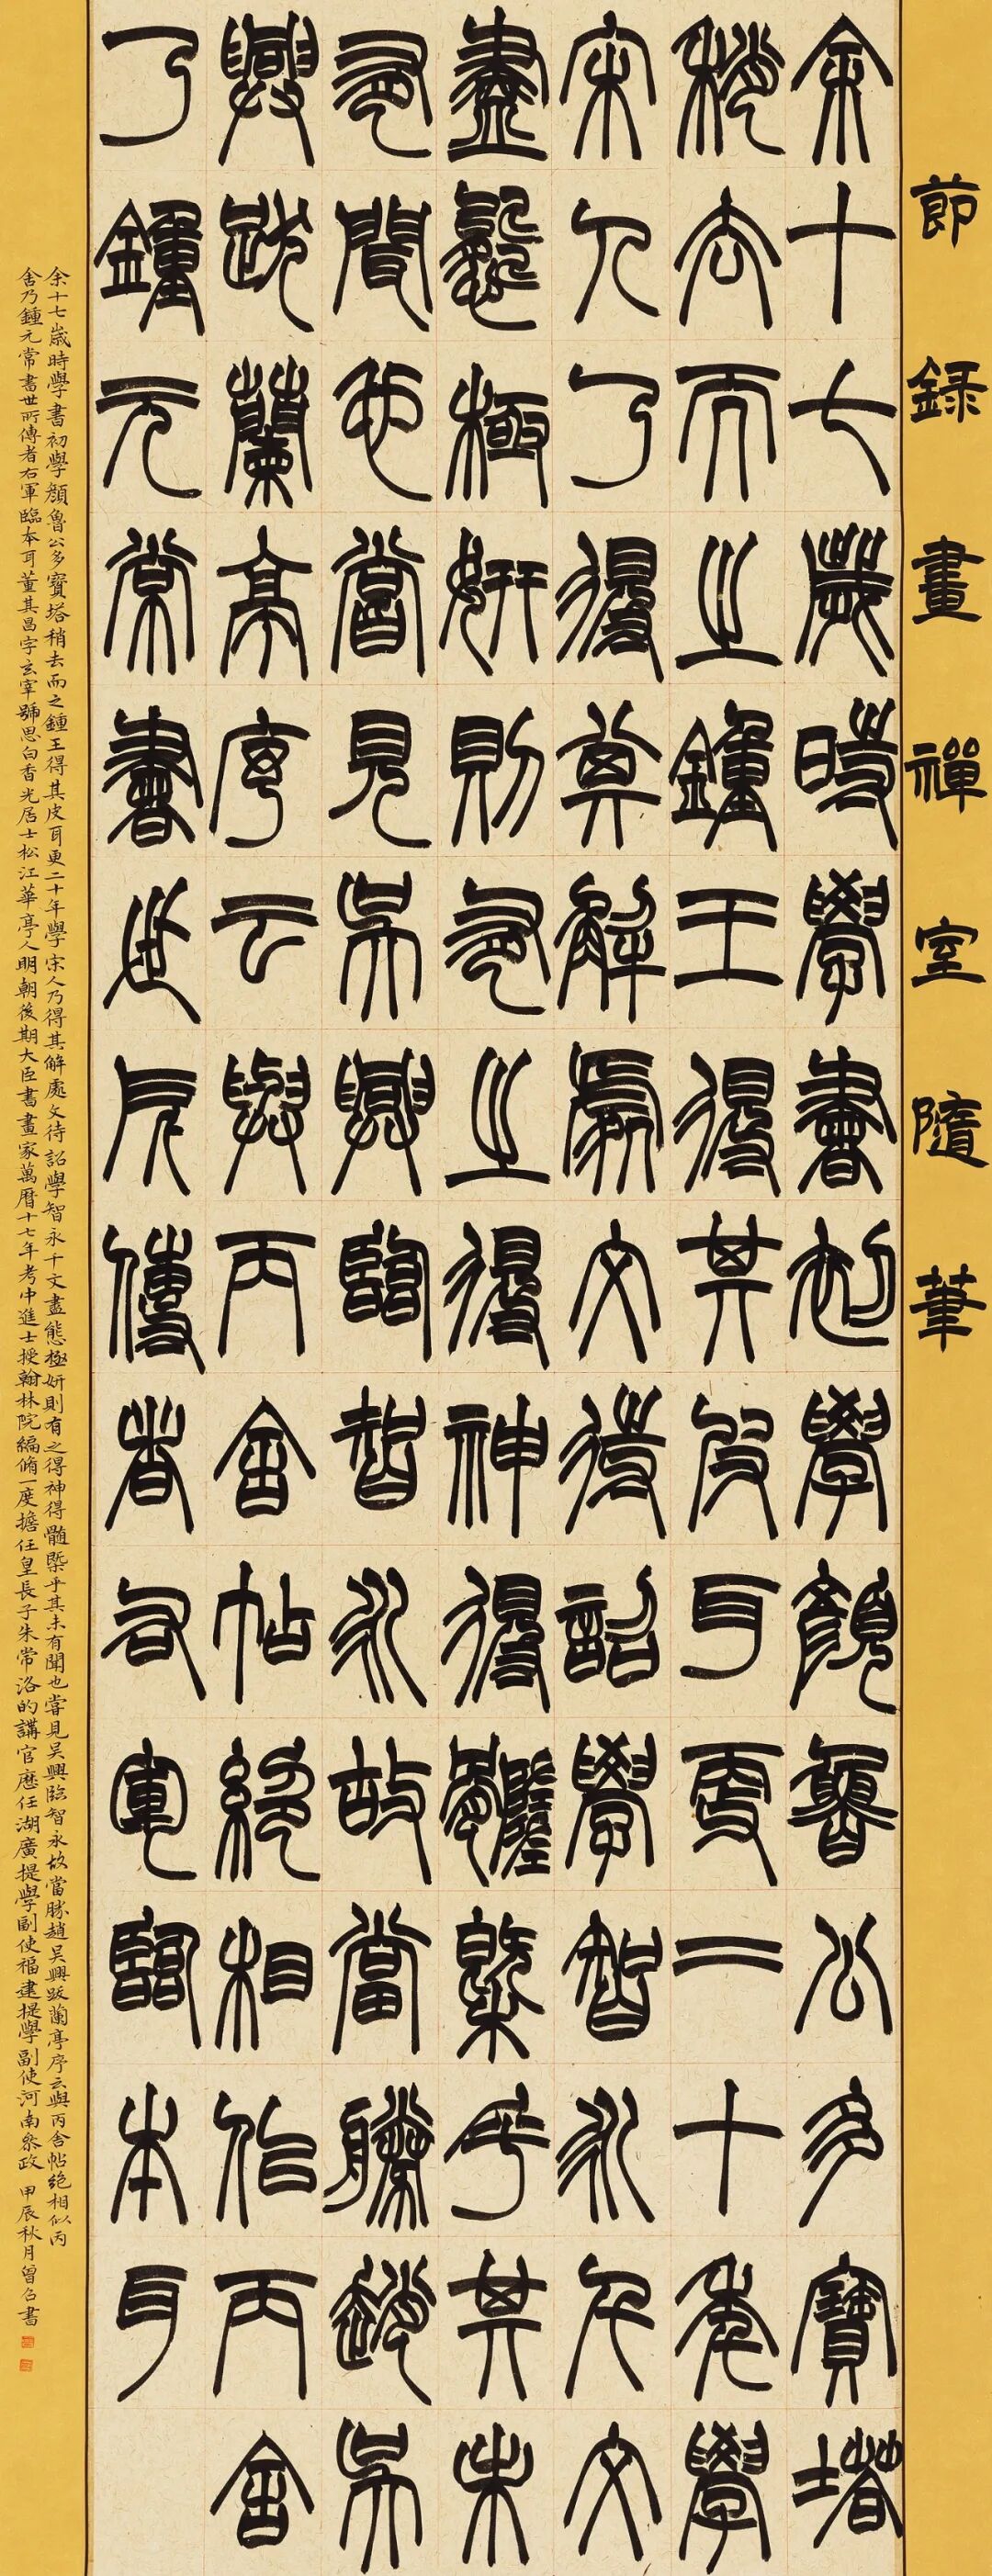 節錄畫禪室隨筆
余十七歲時學書初學顏魯公多寶塔
稍去而之鍾王得其皮耳更二十年學
宋人乃得其解處文待詔學智永千文
盡態極妍則有之得神得髓槩乎其未
有聞也嘗見吳興臨智永故當勝趙吳
興跋蘭亭序云與丙舍帖絕相似丙舍
乃鍾元常書世所傳者右軍臨本耳
余十七歲時學書初學顏魯公多寶塔稍去而之鍾王得其皮耳更二十年學宋人乃得其解處文待詔學智永千文盡態極妍則有之得神得髓槩乎其未有聞也嘗見吳興臨智永故當勝趙吳興跋蘭亭序云與丙舍帖絕相似丙
舍乃鍾元常書世所傳者右軍臨本耳董其昌字玄宰號思白香光居士松江華亭人明朝後期大臣書畫家萬曆十七年考中進士授翰林院編脩一度擔任皇長子朱常洛的講官應任湖廣提學副使福建提學副使河南參政 甲辰秋月曾召書